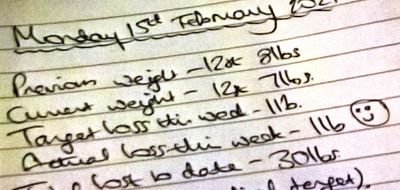 Monday 15st February 202
Previous weight - 12st 8lbs
Current weight - 12st 7lbs.
Target loss this week - 1lb.
Actual loss this week - 1lb
lost to date - 30lbs.
target),